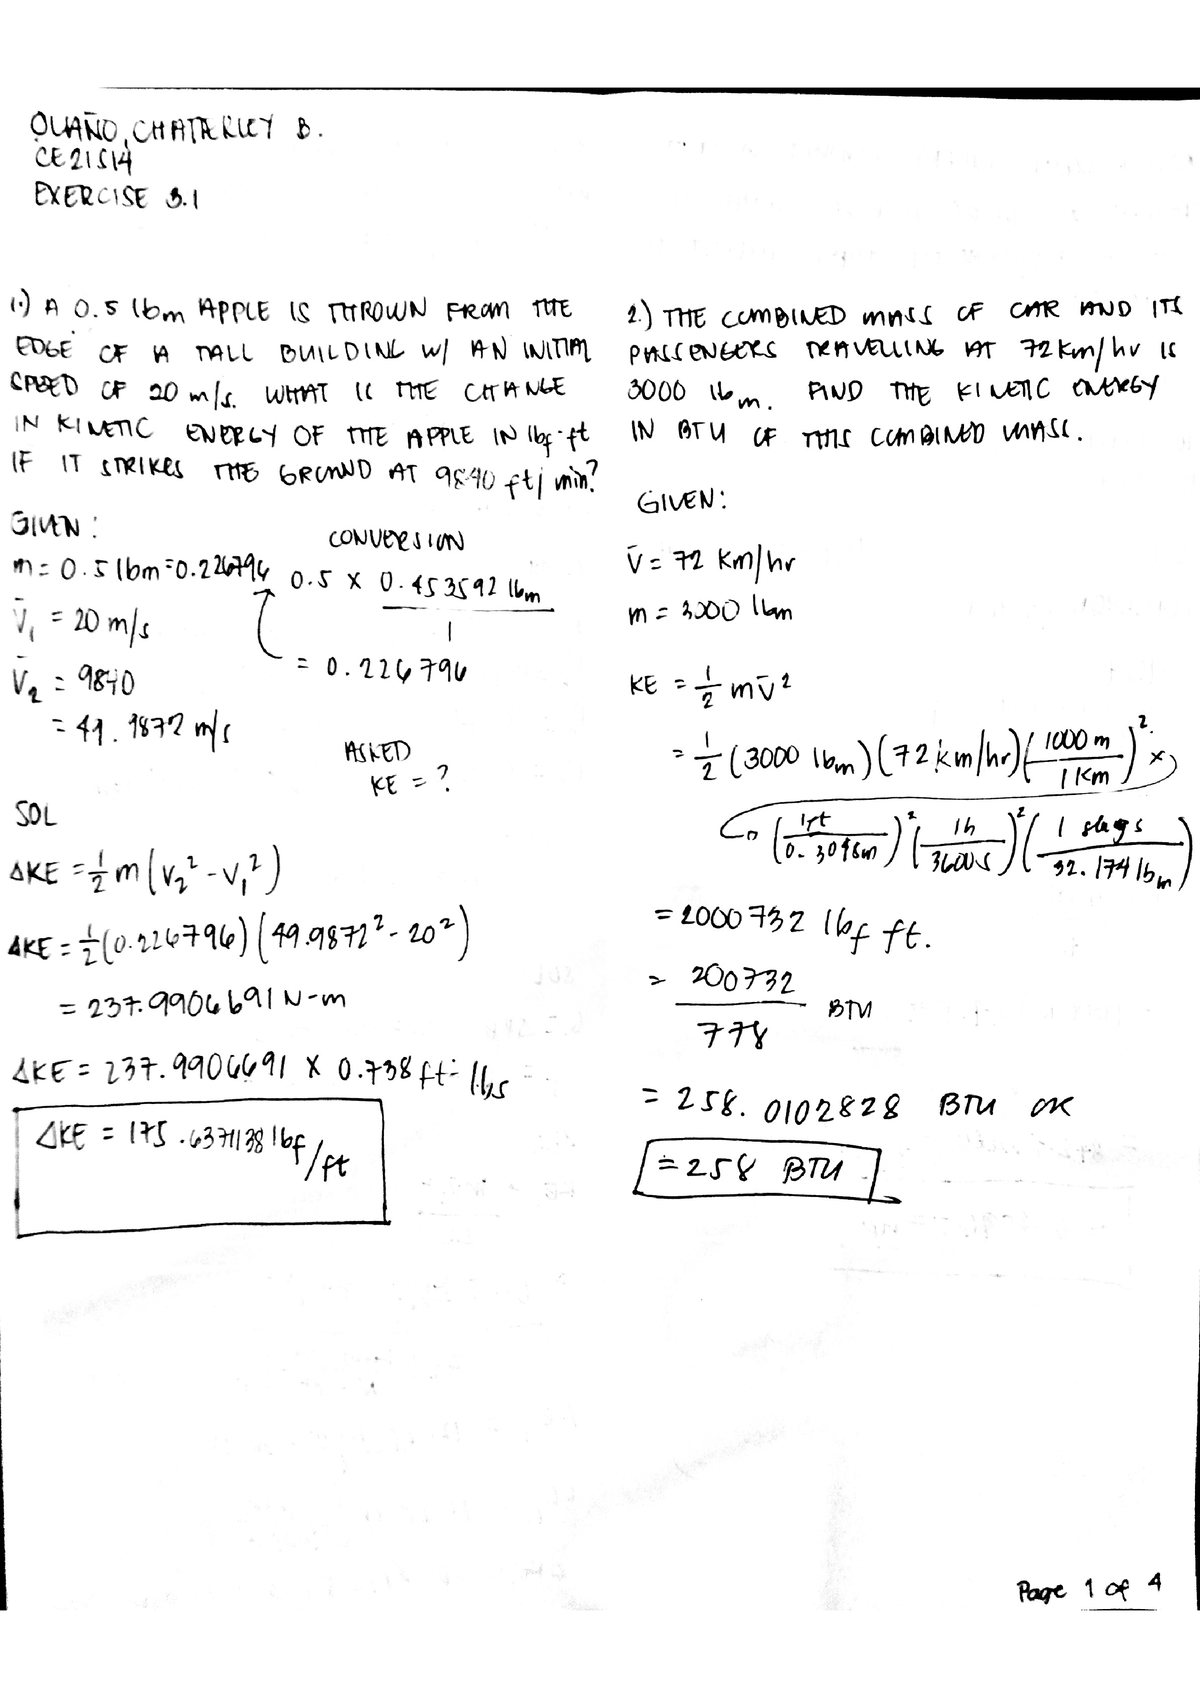 OLAÑO, CHATERLEY B.
CE21S14
EXERCISE 3.1
1.) A 0.5 lbm APPLE IS THROWN FROM THE
EDGE OF A TALL BUILDING W/ AN INITIAL
SPEED OF 20 m/s. WHAT IS THE CHANGE
IN KINETIC ENERGY OF THE APPLE IN lbf-ft
IF IT STRIKES THE GROUND AT 9840 ft/min?
GIVEN:
CONVERSION
m = 0.5 lbm = 0.226796
0.5 x 0.453592 lbm
1
= 0.226796
V̄₁ = 20 m/s
V̄₂ = 9840
= 49.9872 m/s
ASKED
KE = ?
SOL
ΔKE = 1/2 m (V₂² - V₁²)
ΔKE = 1/2 (0.226796) (49.9872² - 20²)
= 237.9906691 N-m
ΔKE = 237.9906691 x 0.738 ft-lbs
ΔKE = 175.6371138 lbf/ft
2.) THE COMBINED MASS OF CAR AND ITS
PASSENGERS TRAVELLING AT 72 km/hr IS
3000 lbm. FIND THE KINETIC ENERGY
IN BTU OF THIS COMBINED MASS.
GIVEN:
v̄ = 72 km/hr
m = 3000 lbm
KE = 1/2 m v̄²
= 1/2 (3000 lbm) (72 km/hr) (1000 m / 1 km)² x
(1ft / 0.3048m)² (1h / 3600s)² (1 slugs / 32.174 lbm)
= 2000732 lbf ft.
= 200732 / 778 BTU
= 258.0102828 BTU OR
= 258 BTU
Page 1 of 4